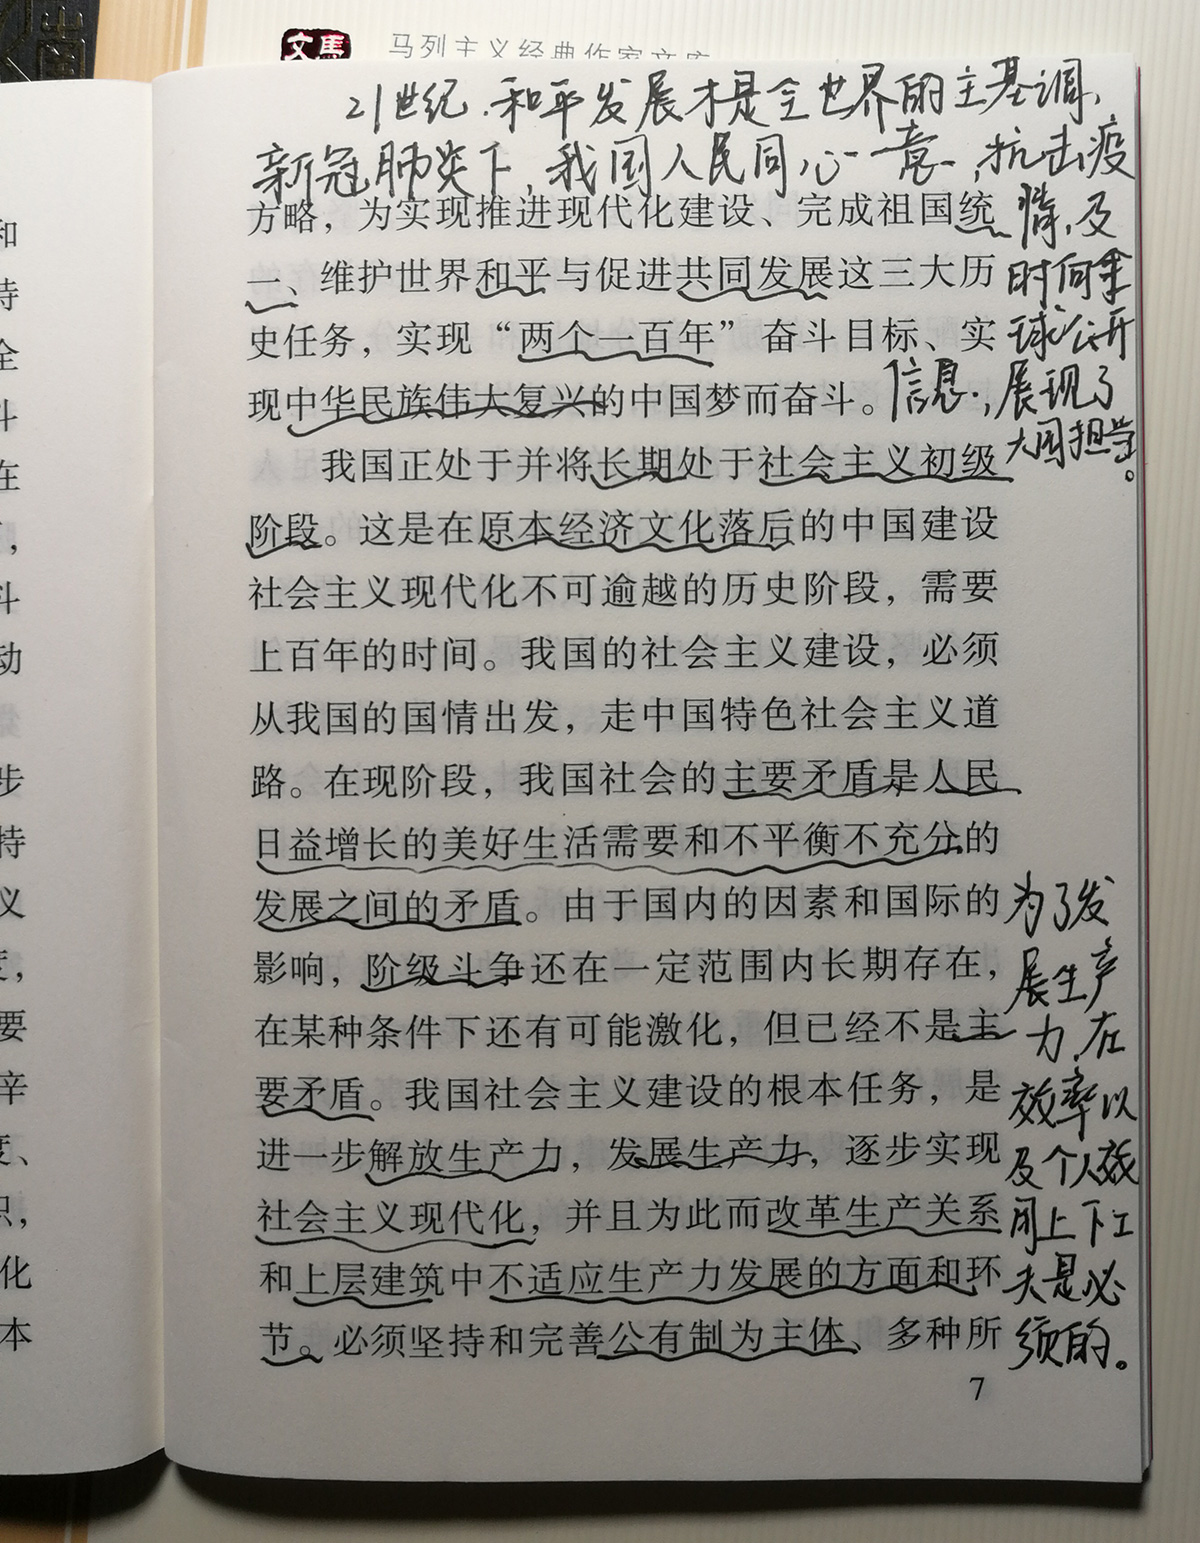 文馬
马列主义经典作家文库
21世纪.和平发展才是全世界的主基调,
新冠肺炎下,我国人民同心一意,抗击疫
情,及
时向全
球公开
信息,展现了
大国担当。
方略，为实现推进现代化建设、完成祖国统
一、维护世界和平与促进共同发展这三大历
史任务，实现“两个一百年”奋斗目标、实
现中华民族伟大复兴的中国梦而奋斗。
我国正处于并将长期处于社会主义初级
阶段。这是在原本经济文化落后的中国建设
社会主义现代化不可逾越的历史阶段，需要
上百年的时间。我国的社会主义建设，必须
从我国的国情出发，走中国特色社会主义道
路。在现阶段，我国社会的主要矛盾是人民
日益增长的美好生活需要和不平衡不充分的
发展之间的矛盾。由于国内的因素和国际的
影响，阶级斗争还在一定范围内长期存在，
在某种条件下还有可能激化，但已经不是主
要矛盾。我国社会主义建设的根本任务，是
进一步解放生产力，发展生产力，逐步实现
社会主义现代化，并且为此而改革生产关系
和上层建筑中不适应生产力发展的方面和环
节。必须坚持和完善公有制为主体、多种所
为了发
展生产
力,在
效率以
及个人效
用上下工
夫是必
须的。
7
和
持
全
斗
在
，
斗
动
党
步
持
义
，
要
辛
、
，
化
本